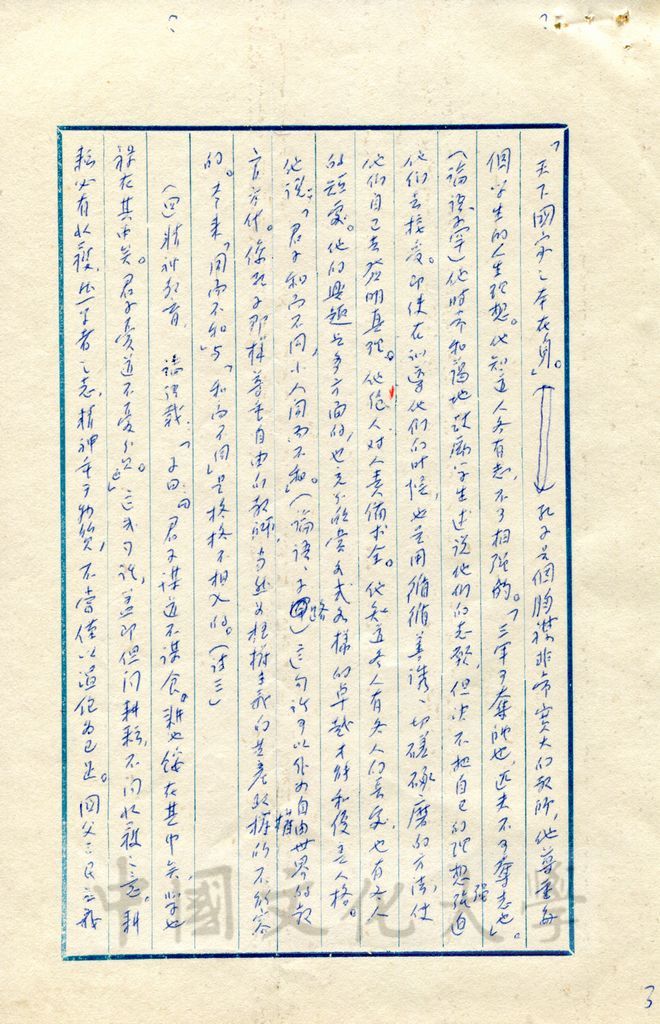 「天下國家之本在身。」孔子是個胸襟非常寬大的教師,他尊重每
個學生的人生理想。他知道人各有志,不可相強的。「三軍可奪帥也,匹夫不可奪志也」。
(論語子罕)他時常和藹地鼓勵學生述說他們的志願,但決不把自己的理想強迫
他們去接受。即使在訓導他們的時候,也是用循循善誘、切磋琢磨的方法,使
他們自己去發明真理。他絕人對人責備求全。他知道各人有各人的長處,也有各人
的短處。他的興趣是多方面的,也充分欣賞各式各樣的卓越才能和優美人格。
他說:「君子和而不同,小人同而不和」。(論語子路)這句話可以作為自由世界的教
育方代。像孔子那樣尊重自由的教師,當然為極權主義的共產政權所不能容
的。本來「同而不和」與「和而不同」是格格不相入的。(註三)
(四)精神教育 論語載:「子曰:君子謀道不謀食。耕也餒在其中矣,學也
祿在其中矣。君子憂道不憂貧。」這或可說,蓋即但問耕耘,不問收穫之意。耕
耘必有收穫,然學者之志,精神重于物質,不當僅以溫飽為已足。國父三民主義
3
中國文化大學